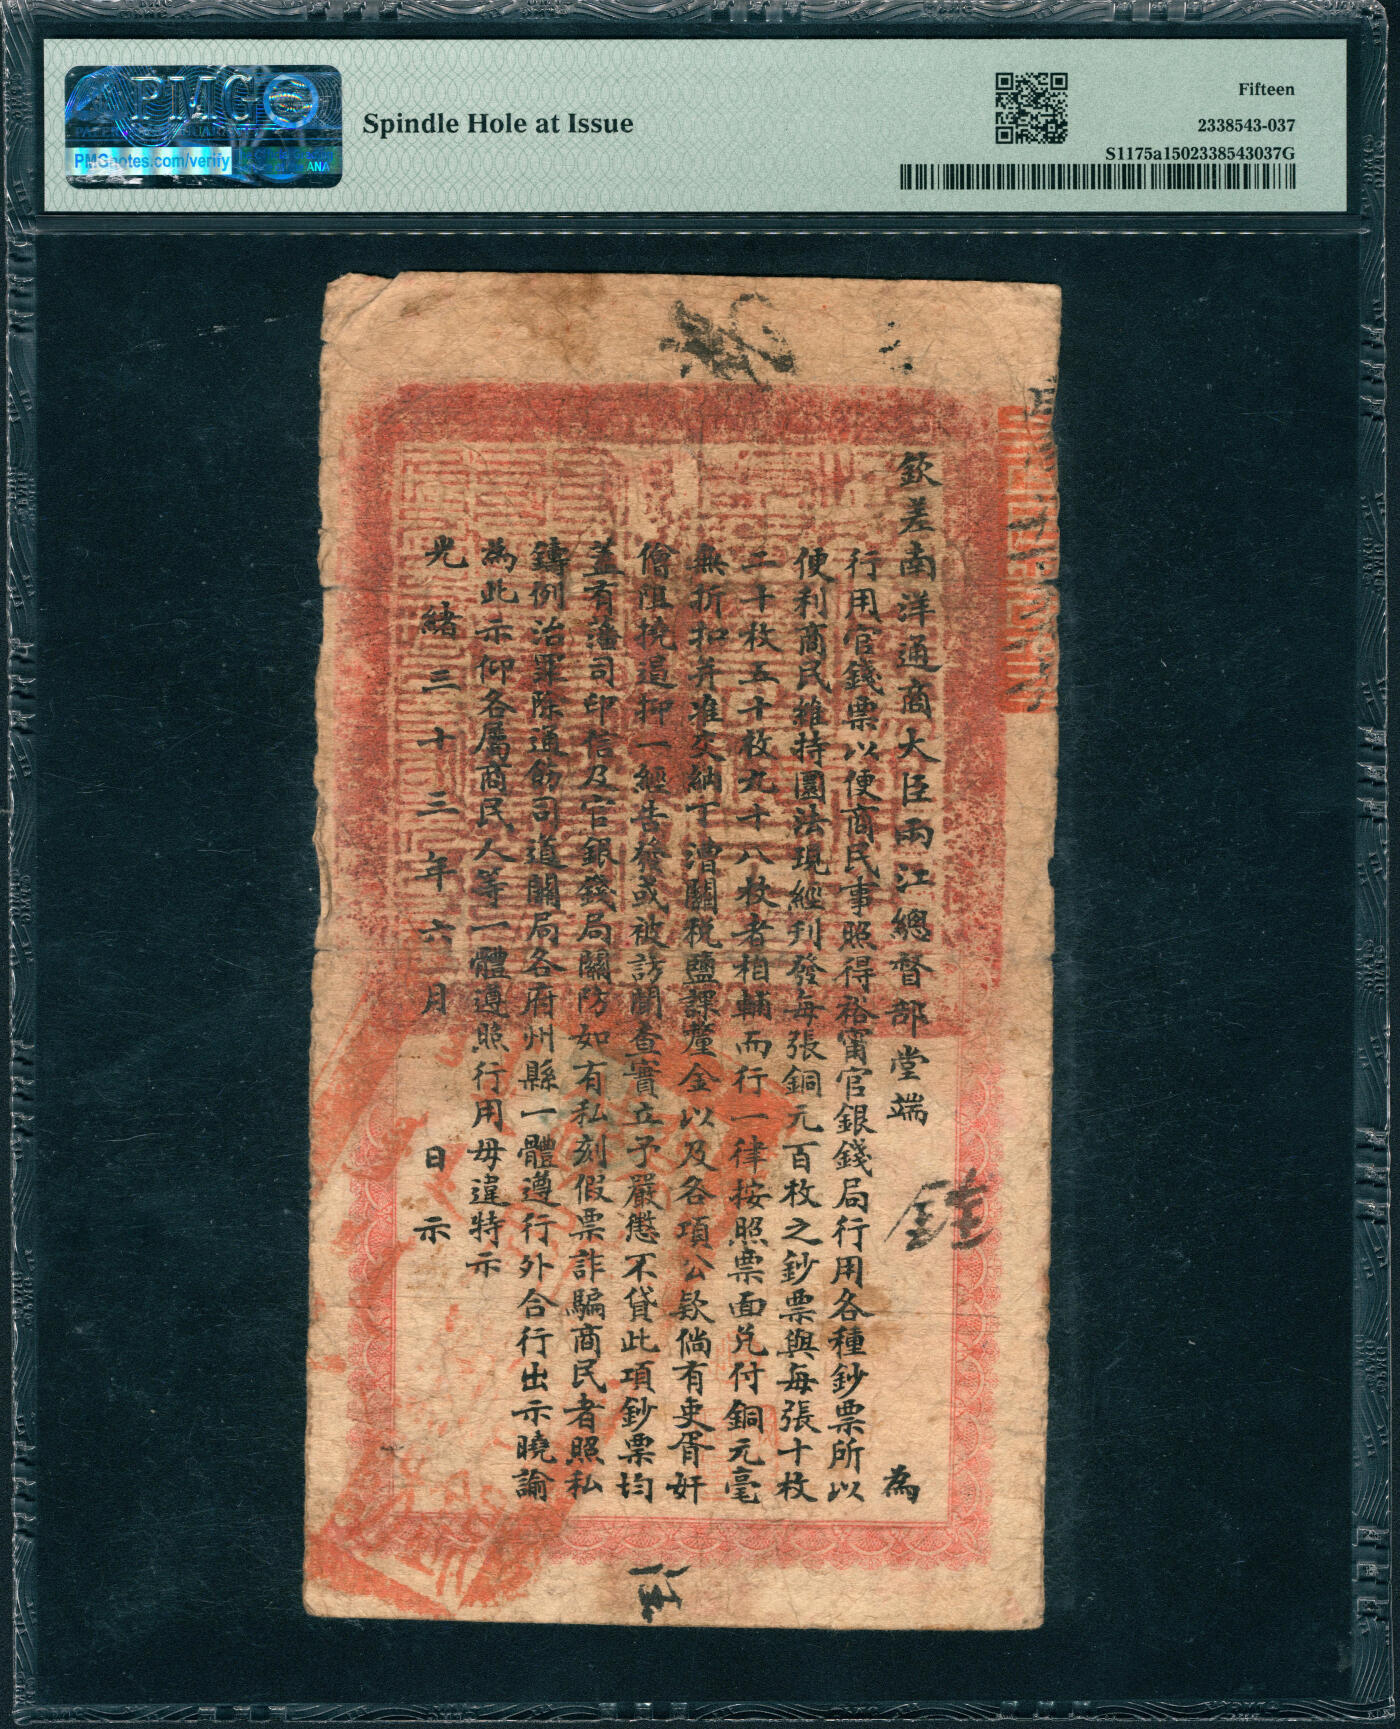 PMG
PMGnotes.com/verify
ANA
Spindle Hole at Issue
Fifteen
2338543-037
S1175a1502338543037G
欽差南洋通商大臣兩江總督部堂端 為
行用官錢票以便商民事照得裕甯官銀錢局行用各種鈔票所以
便利商民維持圜法現經刋發每張銅元百枚之鈔票與每張十枚
二十枚五十枚九十八枚者相輔而行一律按照票面兑付銅元毫
無折扣并准交納丁漕關稅鹽課釐金以及各項公款倘有吏胥奸
儈阻撓逼抑一經告發或被訪聞查實立予嚴懲不貸此項鈔票均
蓋有藩司印信及官銀錢局關防如有私刻假票詐騙商民者照私
鑄例治罪除通飭司道關局各府州縣一體遵行外合行出示曉諭
為此示仰各屬商民人等一體遵照行用毋違特示
光緒三十三年六月 日示